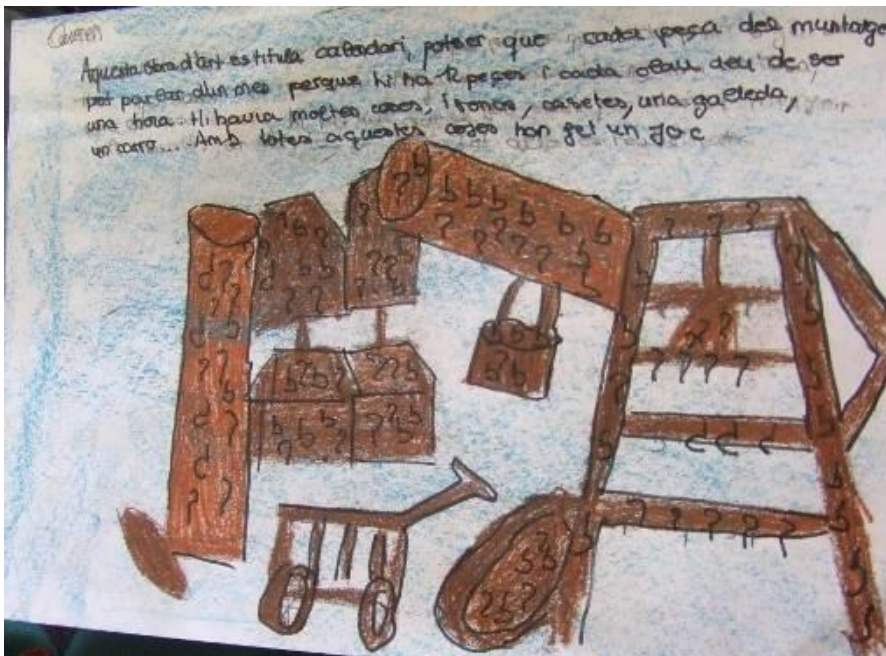 Aquesta obra d'art es titula calendari, potser que cada peça del muntatge
pot parlar d'un mes perque hi ha 12 peçes i cada clau deu de ser
una hora. Hi havia moltes coses, troncs, casetes, una galleda,
un carro... Amb totes aquestes coses han fet un joc